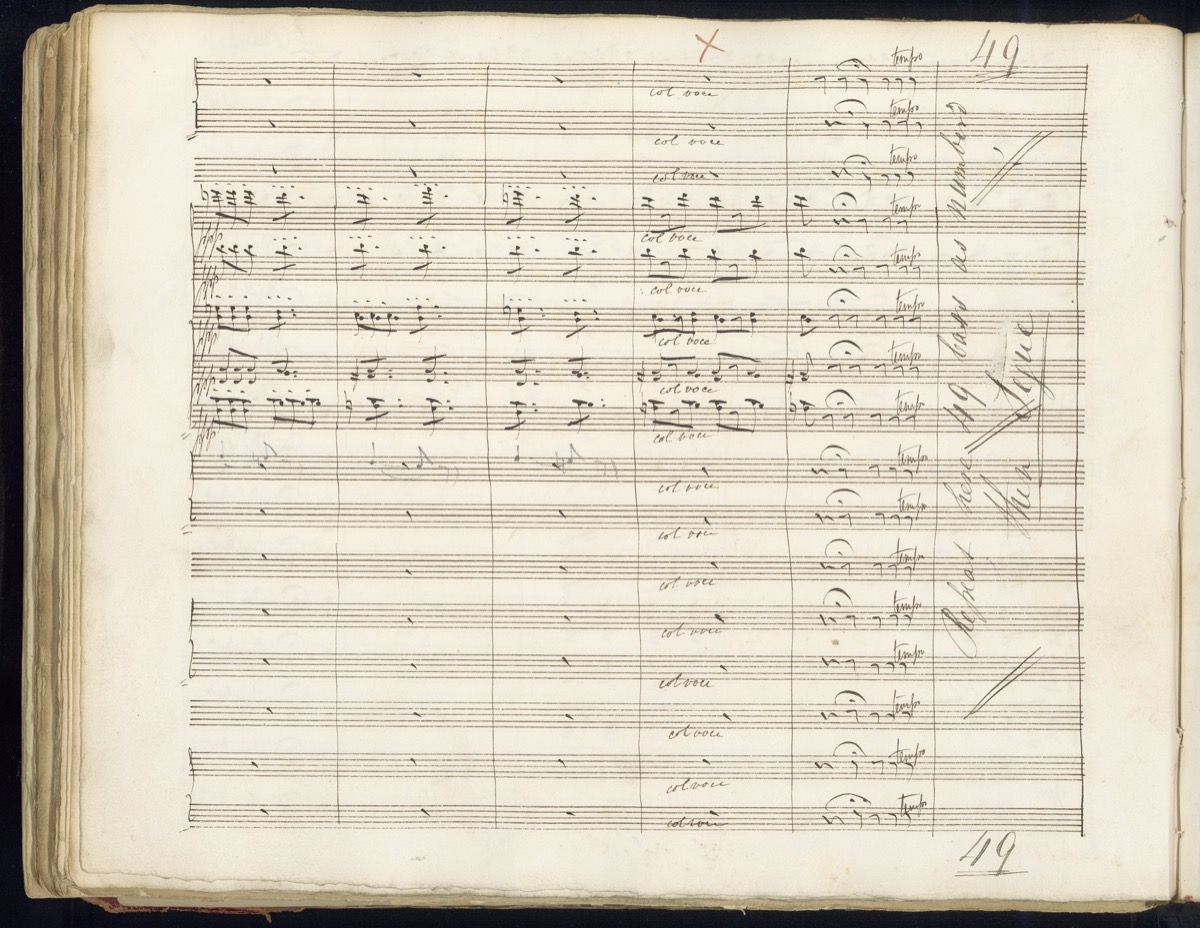 49
tempo
col voce
tempo
col voce
tempo
col voce
tempo
ppp
col voce
tempo
ppp
col voce
tempo
ppp
col voce
tempo
ppp
col voce
tempo
ppp
col voce
tempo
col voce
tempo
col voce
tempo
col voce
tempo
col voce
tempo
col voce
tempo
col voce
tempo
col voce
tempo
col voce
Repeat here 49 bars as numbered
then Segue
49